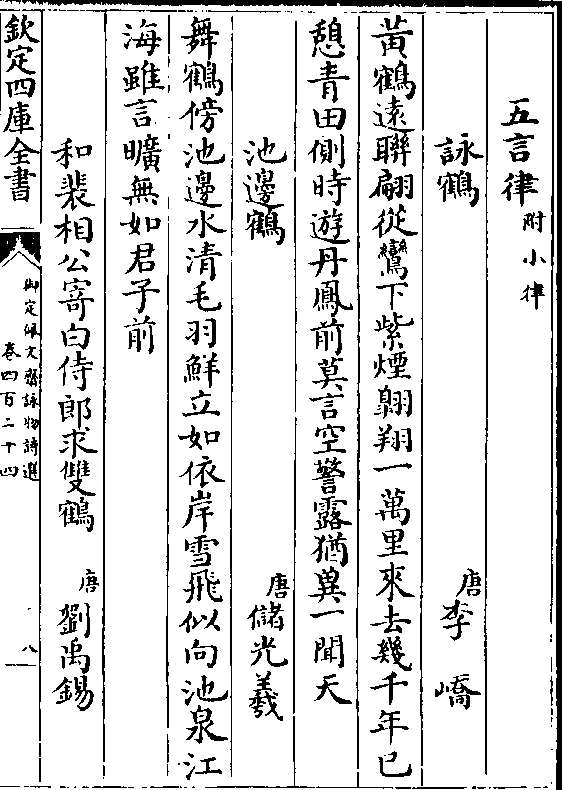 五言律附小律
詠鶴 唐李嶠
黃鶴遠聯翩從鸞下紫煙翺翔一萬里來去幾千年已
憩青田側時遊丹鳳前莫言空警露猶兾一聞天
池邊鶴 唐儲光羲
舞鶴傍池邊水清毛羽鮮立如依岸雪飛似向池泉江
海雖言曠無如君子前
和裴相公寄白侍郎求雙鶴 唐劉禹錫
欽定四庫全書
御定佩文齋詠物詩選
卷四百二十四
八